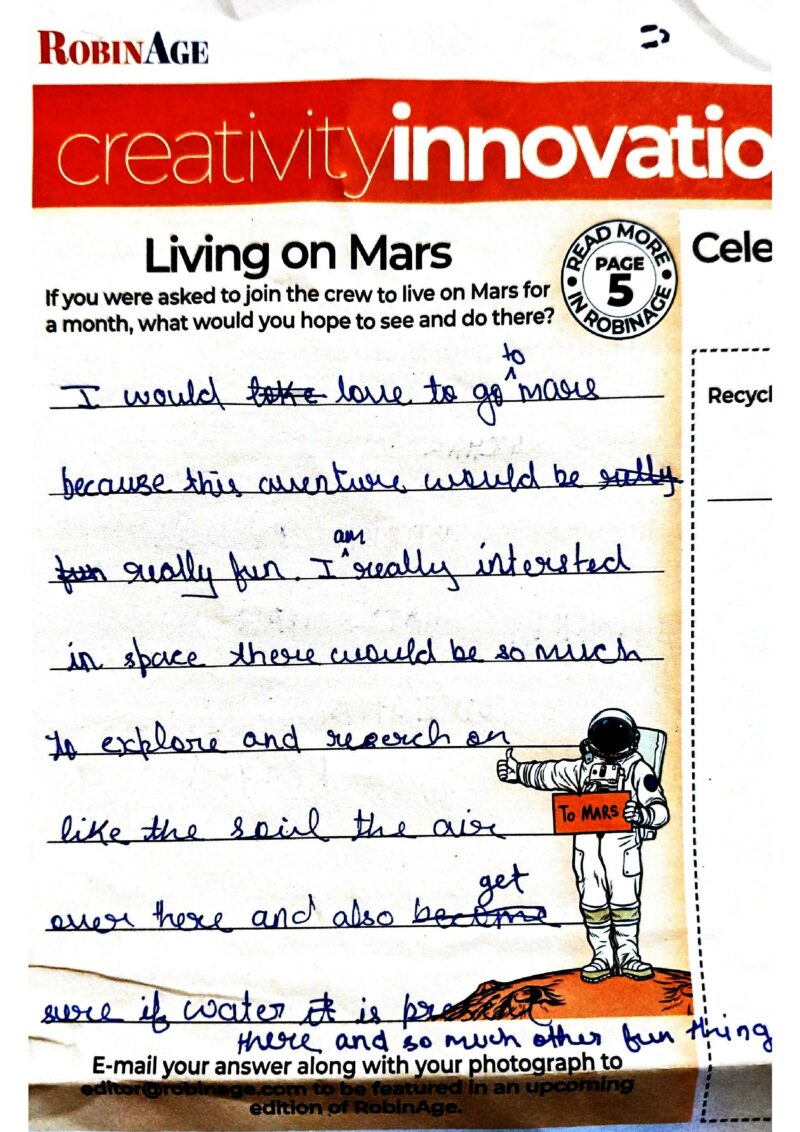 ROBINAGE
creativityinnovatio
Living on Mars
If you were asked to join the crew to live on Mars for
a month, what would you hope to see and do there?
READ MORE
PAGE
5
IN ROBINAGE
Cele
Recycl
to
I would like love to go mars
because this aventure would be
am
fun really fun. I really intersted
in space there would be so much
to explore and reserch on
TO MARS
like the soil the air
get
over there and also become
sure if water it is present
there and so much other fun thing
E-mail your answer along with your photograph to
editor@robinage.com to be featured in an upcoming
edition of RobinAge.